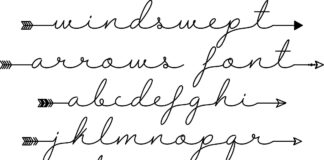 windswept
arrows font
abcdefghi
jklmnopqr